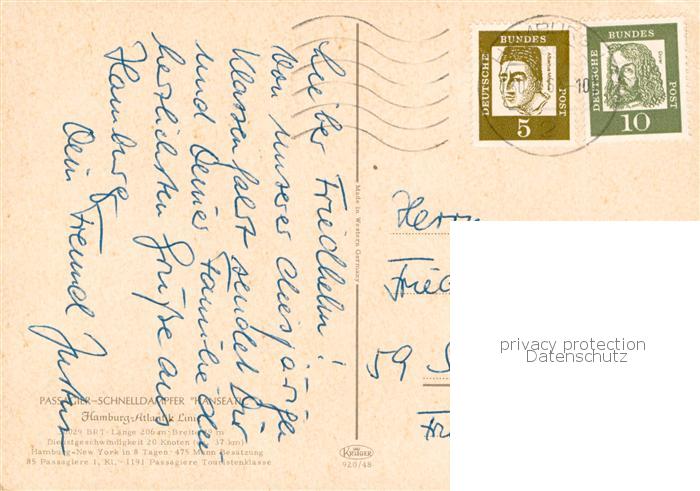 Lieber Friedhelm!
Von unserer diesjährigen
Klassenfahrt sendet Dir
und Deiner Familie die
herzlichsten Grüße aus
Hamburg
Dein Freund
PASSAGIER-SCHNELLDAMPFER "HANSEATIC"
Hamburg-Atlantik Linie
BRT · Länge 206 m · Breite m
Dienstgeschwindigkeit 20 Knoten (ca. 37 km)
Hamburg–New York in 8 Tagen · 475 Mann Besatzung
85 Passagiere 1. Kl. · 1191 Passagiere Touristenklasse
Made in Western Germany
KRÜGER
920/48
DEUTSCHE BUNDES POST
5
DEUTSCHE BUNDES POST
Dürer
10
10
Herrn
59
privacy protection
Datenschutz